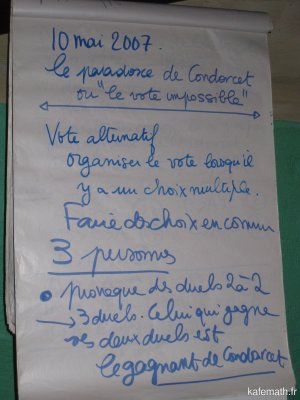 10 mai 2007.
le paradoxe de Condorcet
ou "le vote impossible"
Vote alternatif
organiser le vote lorsqu'il
y a un choix multiple.
Faire des choix en commun
3 personnes
• provoque des duels 2 à 2
→ 3 duels. Celui qui gagne
ses deux duels est
le gagnant de Condorcet
kafemath.fr